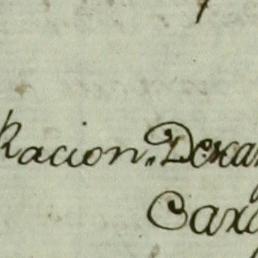 Racion. Dexa
Caxa